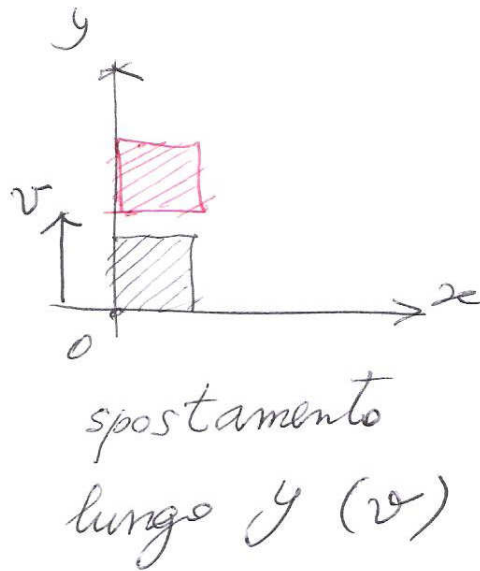 y
v
x
O
spostamento
lungo y (v)